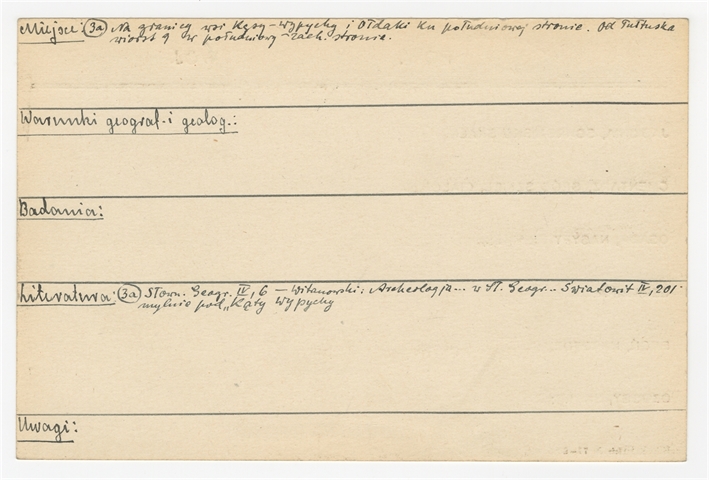 Miejsce: (3a) Na granicy wsi Kęsy-Wypychy i Ołdaki ku południowej stronie. Od Pułtuska
wiorst 9 w południowy-zach. stronie.
Warunki geograf. i geolog.:
Badania:
Literatura: (3a) Słown. Geogr. IV, 6 – Witanowski: Archeologja... w Sł. Geogr... Światowit IV, 201.
mylnie pod „Kąty Wypychy
Uwagi: